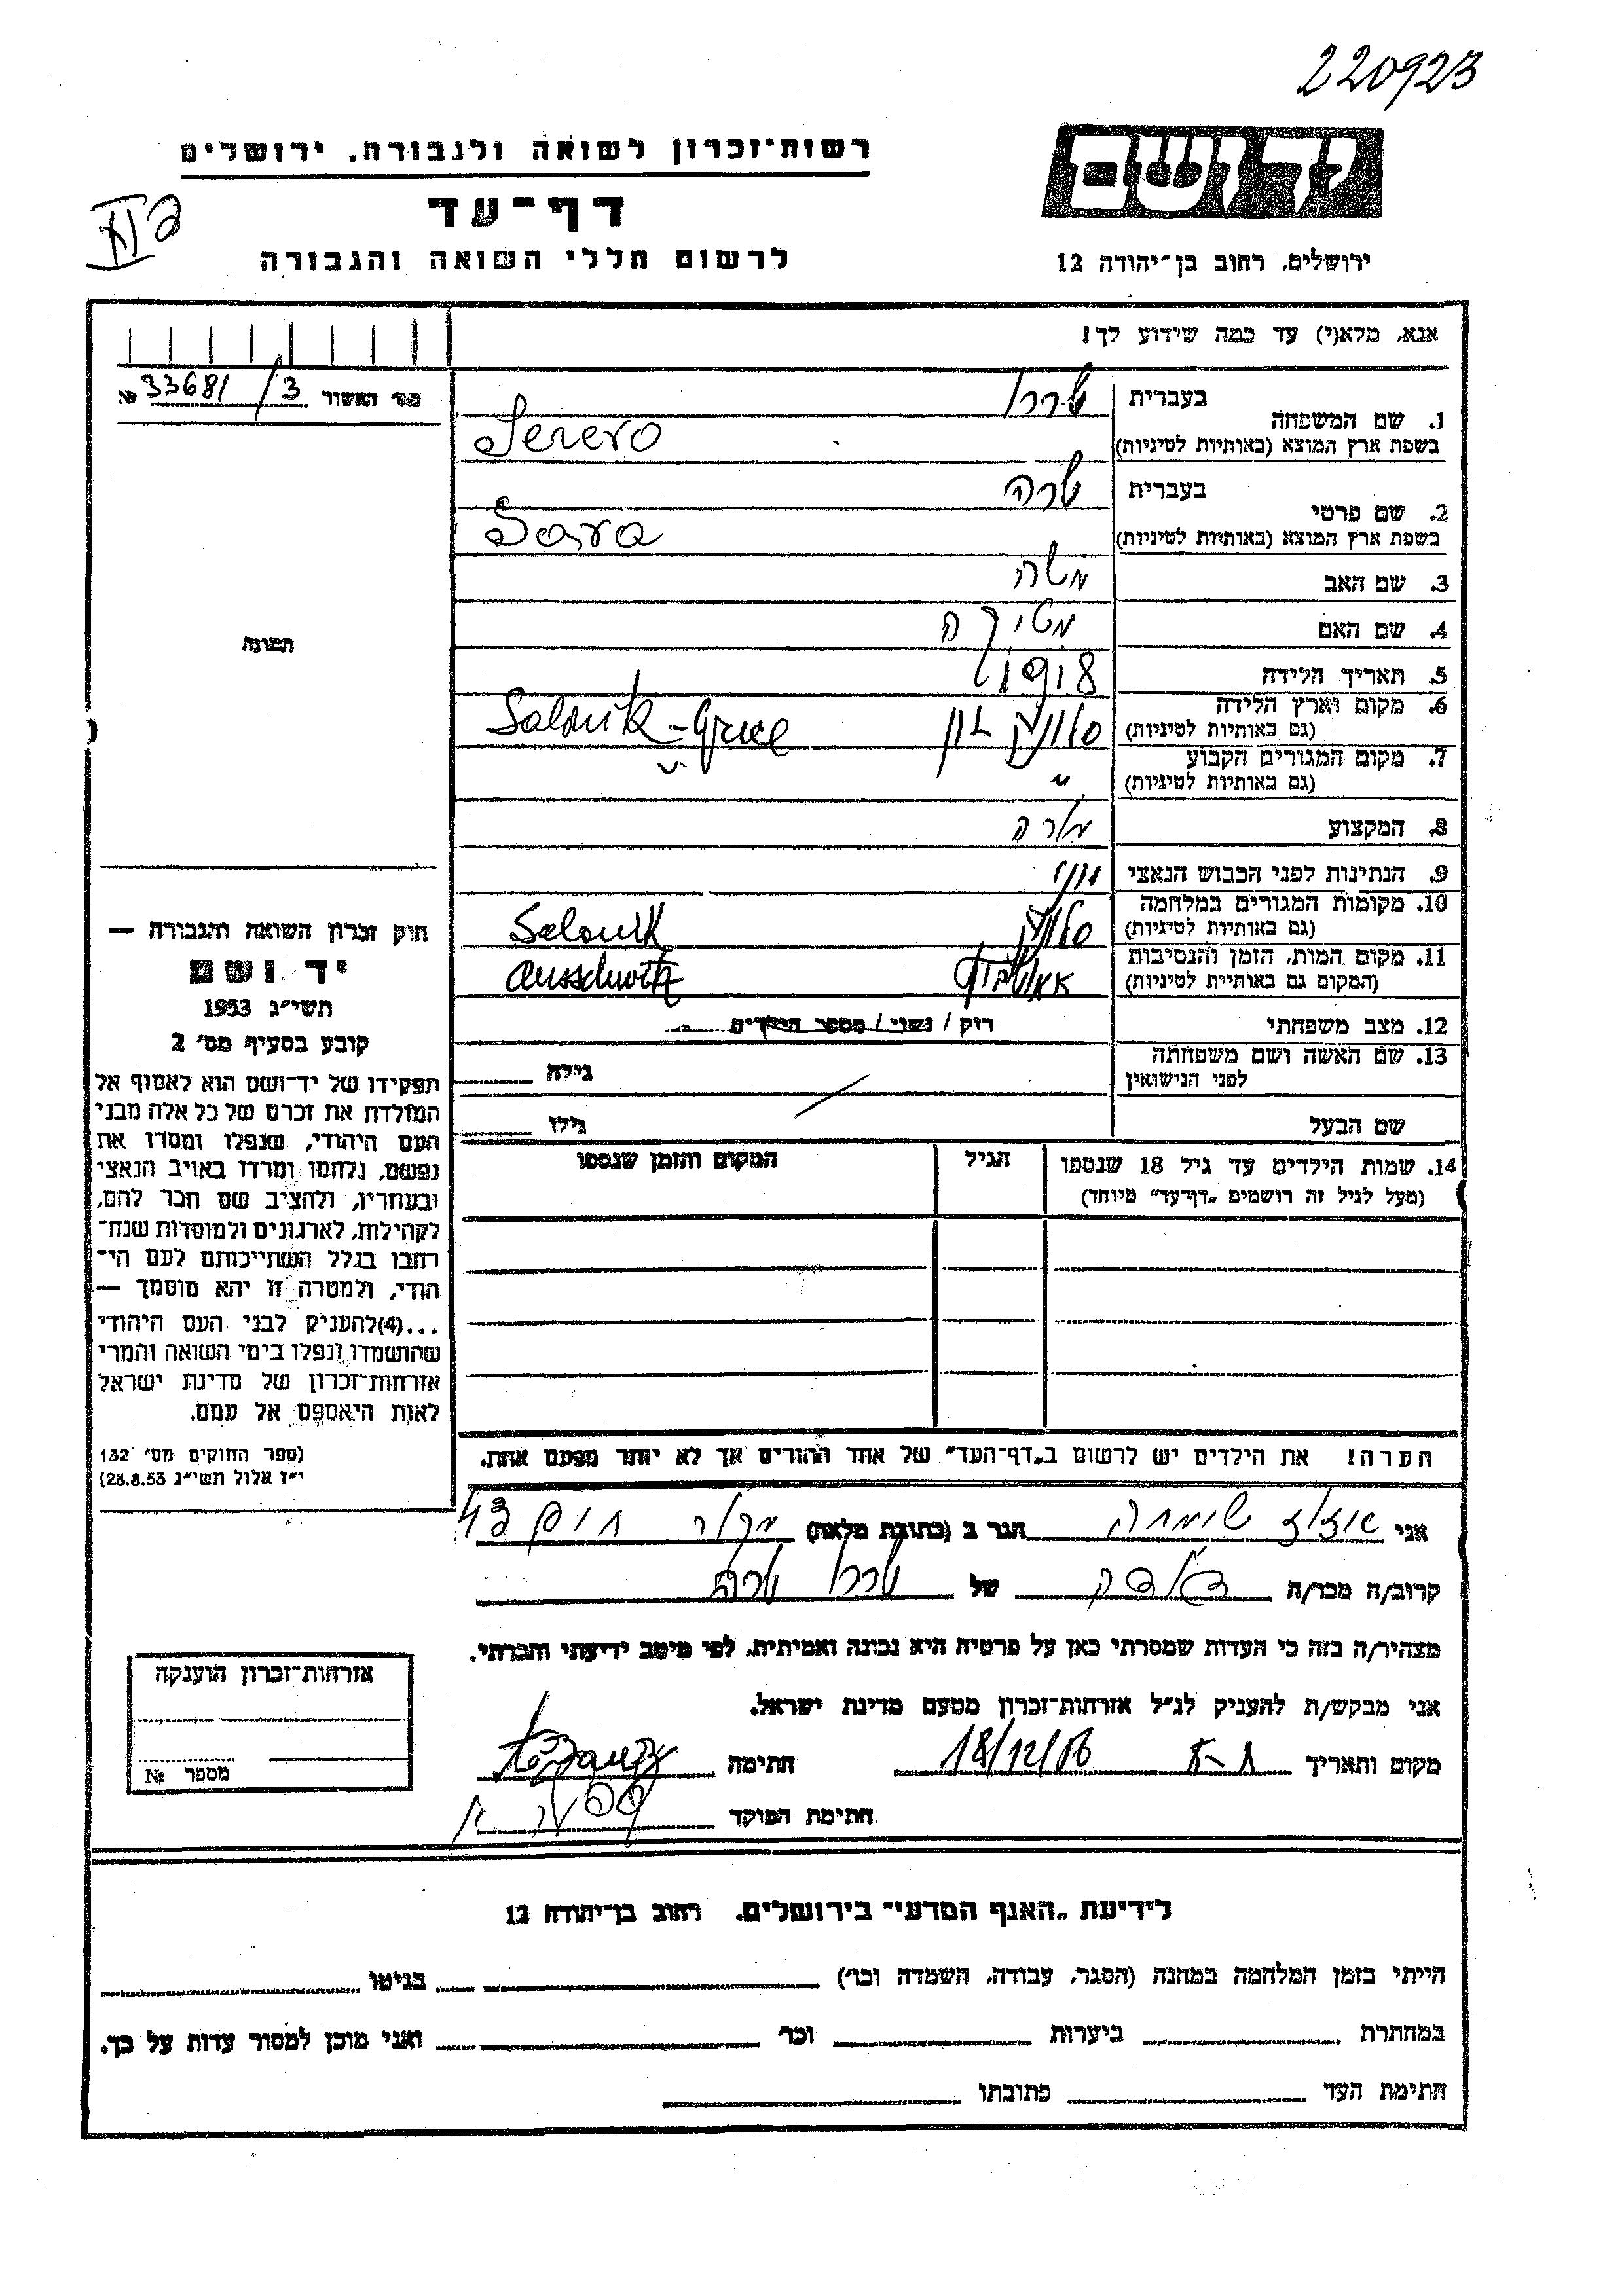 220923
רשות־זכרון לשואה ולגבורה, ירושלים
דף־עד
לרשום חללי השואה והגבורה
יד ושם
ירושלים, רחוב בן־יהודה 12
אנא, מלא(י) עד כמה שידוע לך!
מס׳ האשור 33681/3 №
1. שם המשפחה
בעברית שררו
בשפת ארץ המוצא (באותיות לטיניות) Serero
2. שם פרטי
בעברית שרה
בשפת ארץ המוצא (באותיות לטיניות) Sara
3. שם האב משה
4. שם האם
5. תאריך הלידה 1918
6. מקום וארץ הלידה
(גם באותיות לטיניות) סלוניק יון Salonik - Grece
7. מקום המגורים הקבוע
(גם באותיות לטיניות) " "
8. המקצוע מורה
9. הנתינות לפני הכבוש הנאצי יוני
10. מקומות המגורים במלחמה
(גם באותיות לטיניות) סלוניק Salonik
11. מקום המות, הזמן והנסיבות
(המקום גם באותיית לטיניות) אאושביץ Ausschwitz
12. מצב משפחתי רוק / נשוי / מספר הילדים
13. שם האשה ושם משפחתה
לפני הנישואין גילה
שם הבעל גילו
14. שמות הילדים עד גיל 18 שנספו
(מעל לגיל זה רושמים „דף־עד״ מיוחד)
הגיל
המקום והזמן שנספו
הערה! את הילדים יש לרשום ב„דף־העד״ של אחד ההורים אך לא יותר מפעם אחת.
תמונה
חוק זכרון השואה והגבורה —
יד ושם
תשי״ג 1953
קובע בסעיף מס׳ 2
תפקידו של יד־ושם הוא לאסוף אל
המולדת את זכרם של כל אלה מבני
העם היהודי, שנפלו ומסרו את
נפשם, נלחמו ומרדו באויב הנאצי
ובעוזריו, ולהציב שם וזכר להם,
לקהילות, לארגונים ולמוסדות שנח־
רבו בגלל השתייכותם לעם הי־
הודי, ולמטרה זו יהא מוסמך —
...(4)להעניק לבני העם היהודי
שהושמדו ונפלו בימי השואה והמרי
אזרחות־זכרון של מדינת ישראל
לאות היאספם אל עמם.
(ספר החוקים מס׳ 132
י״ז אלול תשי״ג 28.8.53)
אני שמחה הגר ב (כתובת מלאה) 43
קרוב/ה מכר/ה של שררו שרה
מצהיר/ה בזה כי העדות שמסרתי כאן על פרטיה היא נכונה ואמיתית, לפי מיטב ידיעתי והכרתי.
אני מבקש/ת להעניק לנ״ל אזרחות־זכרון מטעם מדינת ישראל.
מקום ותאריך 18/12/56 חתימה
חתימת הפוקד
אזרחות־זכרון הוענקה
מספר №
לידיעת „האגף המדעי״ בירושלים, רחוב בן־יהודה 12
הייתי בזמן המלחמה במחנה (הסגר, עבודה, השמדה וכו׳) בגיטו
במחתרת ביערות וכו׳ ואני מוכן למסור עדות על כך.
חתימת העד כתובתו